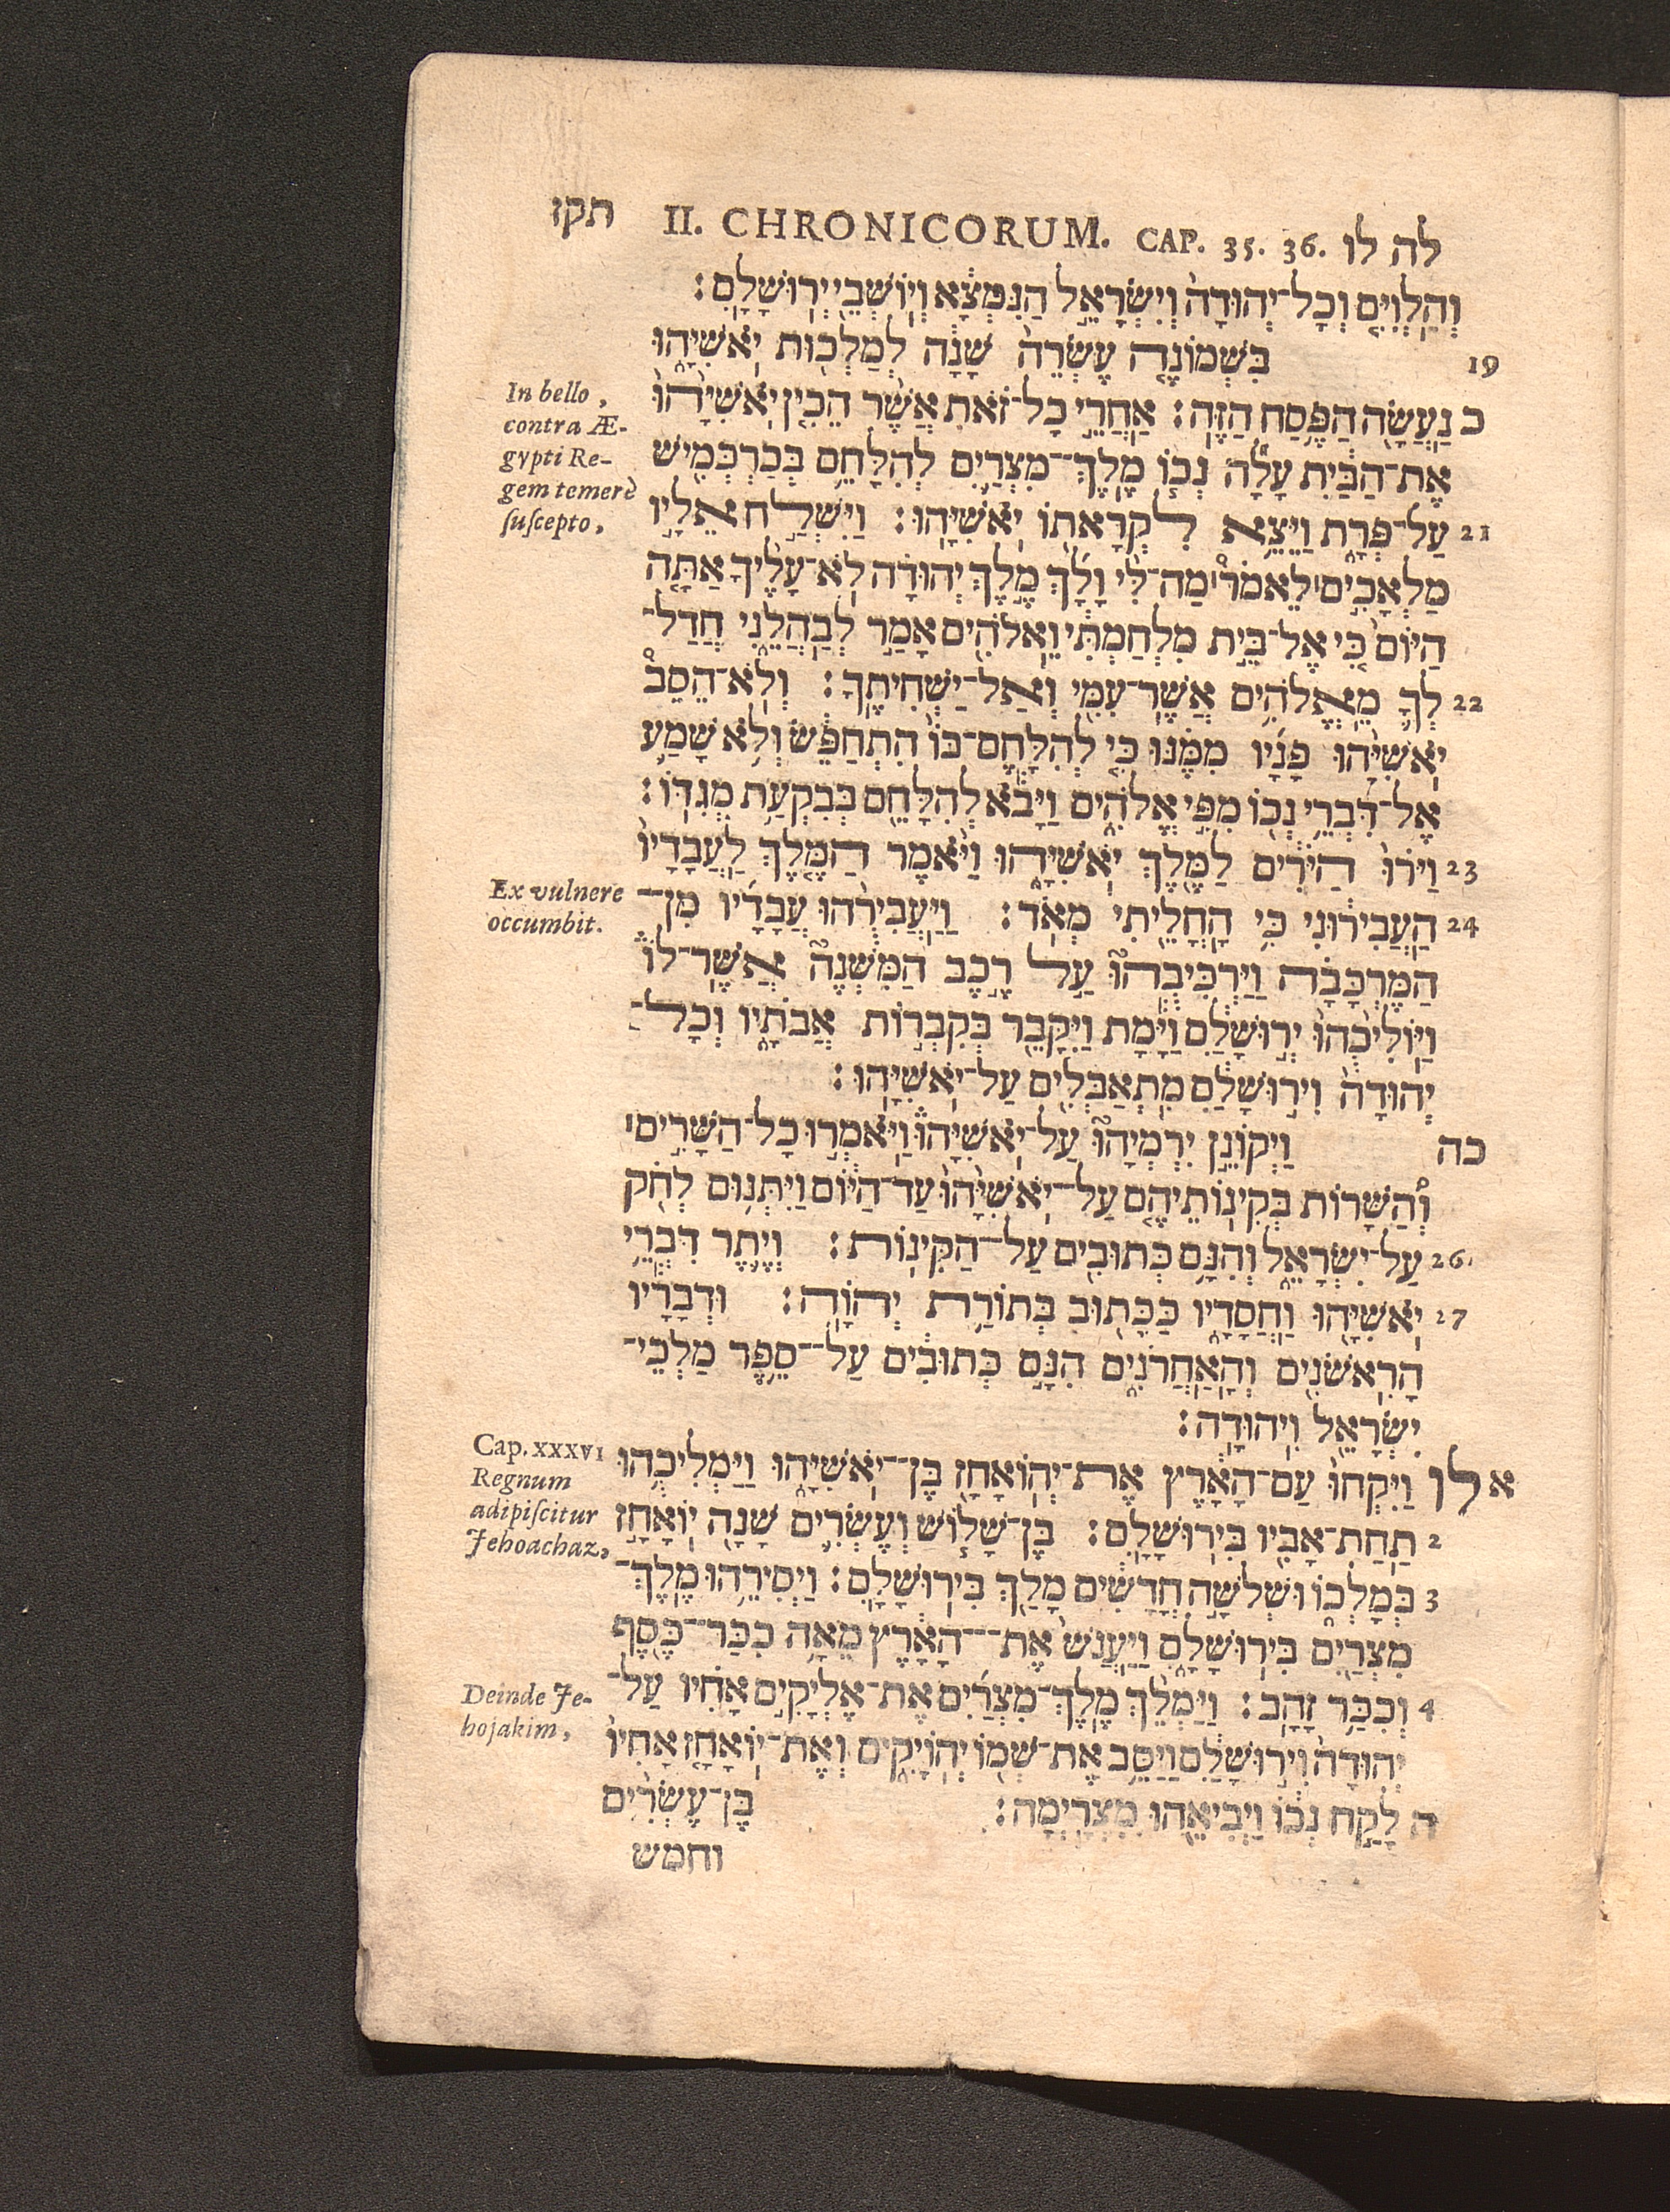 תקז II. CHRONICORUM. CAP. 35. 36. לה לו
וְהַלְוִיִּם וְכָל־יְהוּדָה וְיִשְׂרָאֵל הַנִּמְצָא וְיוֹשְׁבֵי יְרוּשָׁלָ͏ִם׃
19 בִּשְׁמוֹנֶה עֶשְׂרֵה שָׁנָה לְמַלְכוּת יֹאשִׁיָּהוּ
In bello,
contra Æ-
gypti Re-
gem temerè
ſuſcepto,
כ נַעֲשָׂה הַפֶּסַח הַזֶּה׃ אַחֲרֵי כָל־זֹאת אֲשֶׁר הֵכִין יֹאשִׁיָּהוּ
אֶת־הַבַּיִת עָלָה נְכוֹ מֶלֶךְ־מִצְרַיִם לְהִלָּחֵם בְּכַרְכְּמִישׁ
21 עַל־פְּרָת וַיֵּצֵא לִקְרָאתוֹ יֹאשִׁיָּהוּ׃ וַיִּשְׁלַח אֵלָיו
מַלְאָכִים׀ לֵאמֹר׀ מַה־לִּי וָלָךְ מֶלֶךְ יְהוּדָה לֹא־עָלֶיךָ אַתָּה
הַיּוֹם כִּי אֶל־בֵּית מִלְחַמְתִּי וֵאלֹהִים אָמַר לְבַהֲלֵנִי חֲדַל־
22 לְךָ מֵאֱלֹהִים אֲשֶׁר־עִמִּי וְאַל־יַשְׁחִיתֶךָ׃ וְלֹא־הֵסֵב
יֹאשִׁיָּהוּ פָנָיו מִמֶּנּוּ כִּי לְהִלָּחֶם־בּוֹ הִתְחַפֵּשׂ וְלֹא שָׁמַע
אֶל־דִּבְרֵי נְכוֹ מִפִּי אֱלֹהִים וַיָּבֹא לְהִלָּחֵם בְּבִקְעַת מְגִדּוֹ׃
23 וַיֹּרוּ הַיֹּרִים לַמֶּלֶךְ יֹאשִׁיָּהוּ וַיֹּאמֶר הַמֶּלֶךְ לַעֲבָדָיו
Ex vulnere
occumbit.
24 הַעֲבִירוּנִי כִּי הָחֳלֵיתִי מְאֹד׃ וַיַּעֲבִירֻהוּ עֲבָדָיו מִן־
הַמֶּרְכָּבָה וַיַּרְכִּיבֻהוּ עַל רֶכֶב הַמִּשְׁנֶה אֲשֶׁר־לוֹ
וַיּוֹלִיכֻהוּ יְרוּשָׁלַ͏ִם וַיָּמָת וַיִּקָּבֵר בְּקִבְרוֹת אֲבֹתָיו וְכָל־
יְהוּדָה וִירוּשָׁלַ͏ִם מִתְאַבְּלִים עַל־יֹאשִׁיָּהוּ׃
כה וַיְקוֹנֵן יִרְמְיָהוּ עַל־יֹאשִׁיָּהוּ וַיֹּאמְרוּ כָל־הַשָּׁרִים׀
וְהַשָּׁרוֹת בְּקִינוֹתֵיהֶם עַל־יֹאשִׁיָּהוּ עַד־הַיּוֹם וַיִּתְּנוּם לְחֹק
26 עַל־יִשְׂרָאֵל וְהִנָּם כְּתוּבִים עַל־הַקִּינוֹת׃ וְיֶתֶר דִּבְרֵי
27 יֹאשִׁיָּהוּ וַחֲסָדָיו כַּכָּתוּב בְּתוֹרַת יְהוָה׃ וּדְבָרָיו
הָרִאשֹׁנִים וְהָאַחֲרֹנִים הִנָּם כְּתוּבִים עַל־סֵפֶר מַלְכֵי־
יִשְׂרָאֵל וִיהוּדָה׃
Cap. XXXVI
Regnum
adipiſcitur
Jehoachaz,
א לו וַיִּקְחוּ עַם־הָאָרֶץ אֶת־יְהוֹאָחָז בֶּן־יֹאשִׁיָּהוּ וַיַּמְלִיכֻהוּ
2 תַחַת־אָבִיו בִּירוּשָׁלָ͏ִם׃ בֶּן־שָׁלוֹשׁ וְעֶשְׂרִים שָׁנָה יוֹאָחָז
3 בְּמָלְכוֹ וּשְׁלֹשָׁה חֳדָשִׁים מָלַךְ בִּירוּשָׁלָ͏ִם׃ וַיְסִירֵהוּ מֶלֶךְ־
מִצְרַיִם בִּירוּשָׁלָ͏ִם וַיַּעֲנֹשׁ אֶת־הָאָרֶץ מֵאָה כִכַּר־כֶּסֶף
Deinde Je-
hojakim,
4 וְכִכַּר זָהָב׃ וַיַּמְלֵךְ מֶלֶךְ־מִצְרַיִם אֶת־אֶלְיָקִים אָחִיו עַל־
יְהוּדָה וִירוּשָׁלַ͏ִם וַיַּסֵּב אֶת־שְׁמוֹ יְהוֹיָקִים וְאֶת־יוֹאָחָז אָחִיו
ה לָקַח נְכוֹ וַיְבִיאֵהוּ מִצְרָיְמָה׃ בֶּן־עֶשְׂרִים
וחמש